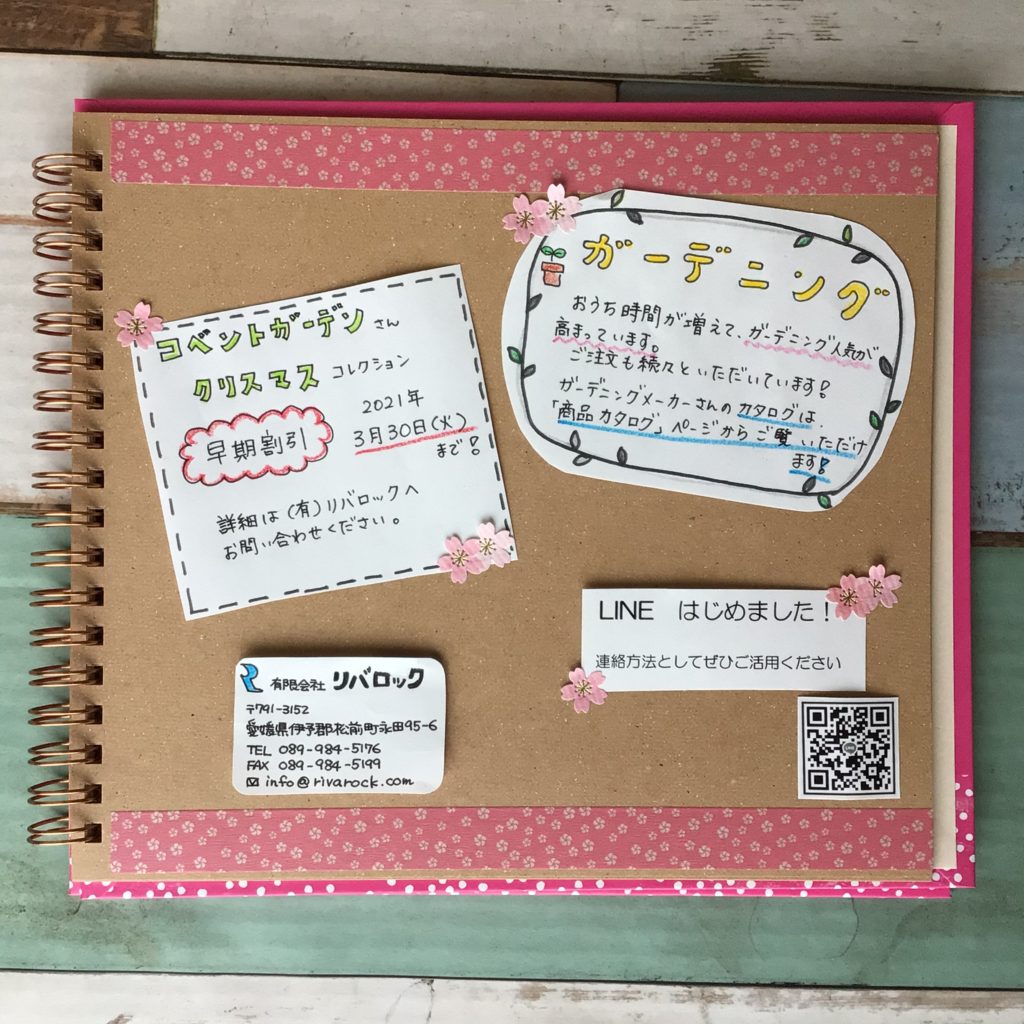 コベントガーデンさん
クリスマスコレクション
早期割引
2021年
3月30日(火)
まで!
詳細は(有)リバロックへ
お問い合わせください。
ガーデニング
おうち時間が増えて、ガーデニング人気が
高まっています。
ご注文も続々といただいています!
ガーデニングメーカーさんのカタログは、
「商品カタログ」ページからご覧いただけ
ます!
LINE はじめました!
連絡方法としてぜひご活用ください
有限会社 リバロック
〒791-3152
愛媛県伊予郡松前町永田95-6
TEL 089-984-5176
FAX 089-984-5199
info@rivarock.com